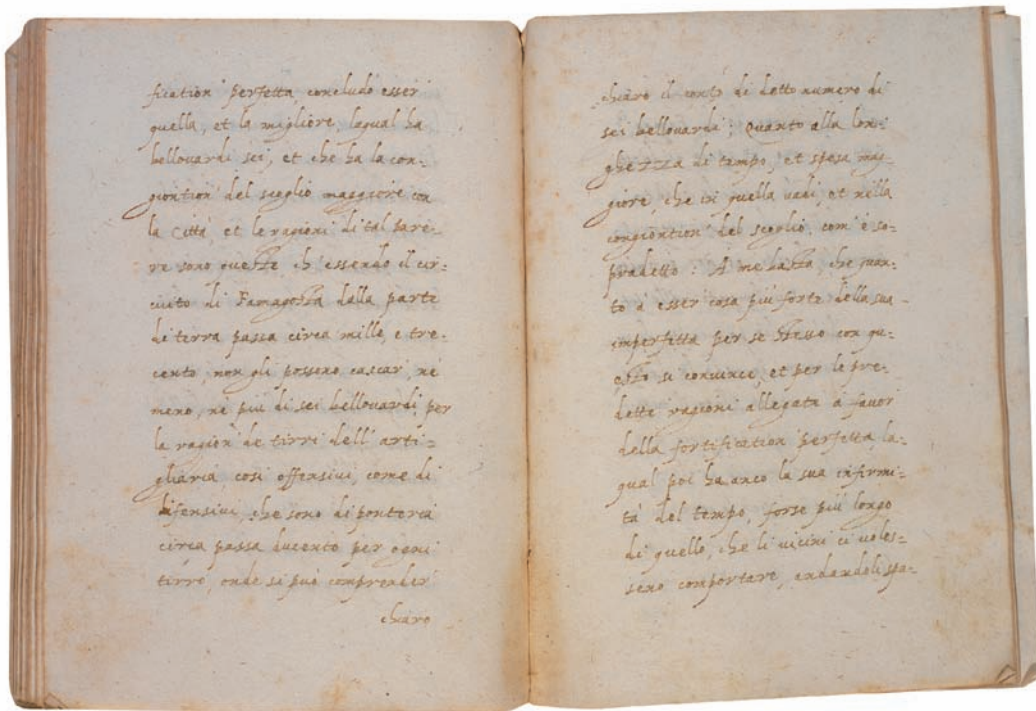 fication' perfetta, concludo esser
quella, et la migliore, laqual ha
bellouardi sei, et che ha la con:
giontion' del scoglio maggiore con
la Città, et le ragioni di tal pare:
re sono queste, ch'essendo il cir:
cuito di Famagosta dalla parte
di terra passa circa mille, e tre:
cento, non gli possono cascar, ne
meno, ne più di sei bellouardi per
la ragion' de tirri dell'arti=
gliaria, cosi offensiui, come di
difensiui, che sono di ponteria
circa passa ducento per ogni
tirro, onde si può comprender'
chiaro
chiaro il conto di detto numero di
sei bellouardi; Quanto alla lon:
ghezza di tempo, et spesa mag:
giore, che in quella uadi, et nella
congiontion' del scoglio, com'è so:
pradetto: A me basta, che quan:
to à esser cosa più forte della sua
imperfetta per se stesso con que:
sto si conuince, et per le pre:
dette ragioni allegata à fauor
della fortification' perfetta, la:
qual poi ha anco la sua infirmi:
tà del tempo, forse più longo
di quello, che li uicini ci uoles=
seno comportare, andandoli spa: